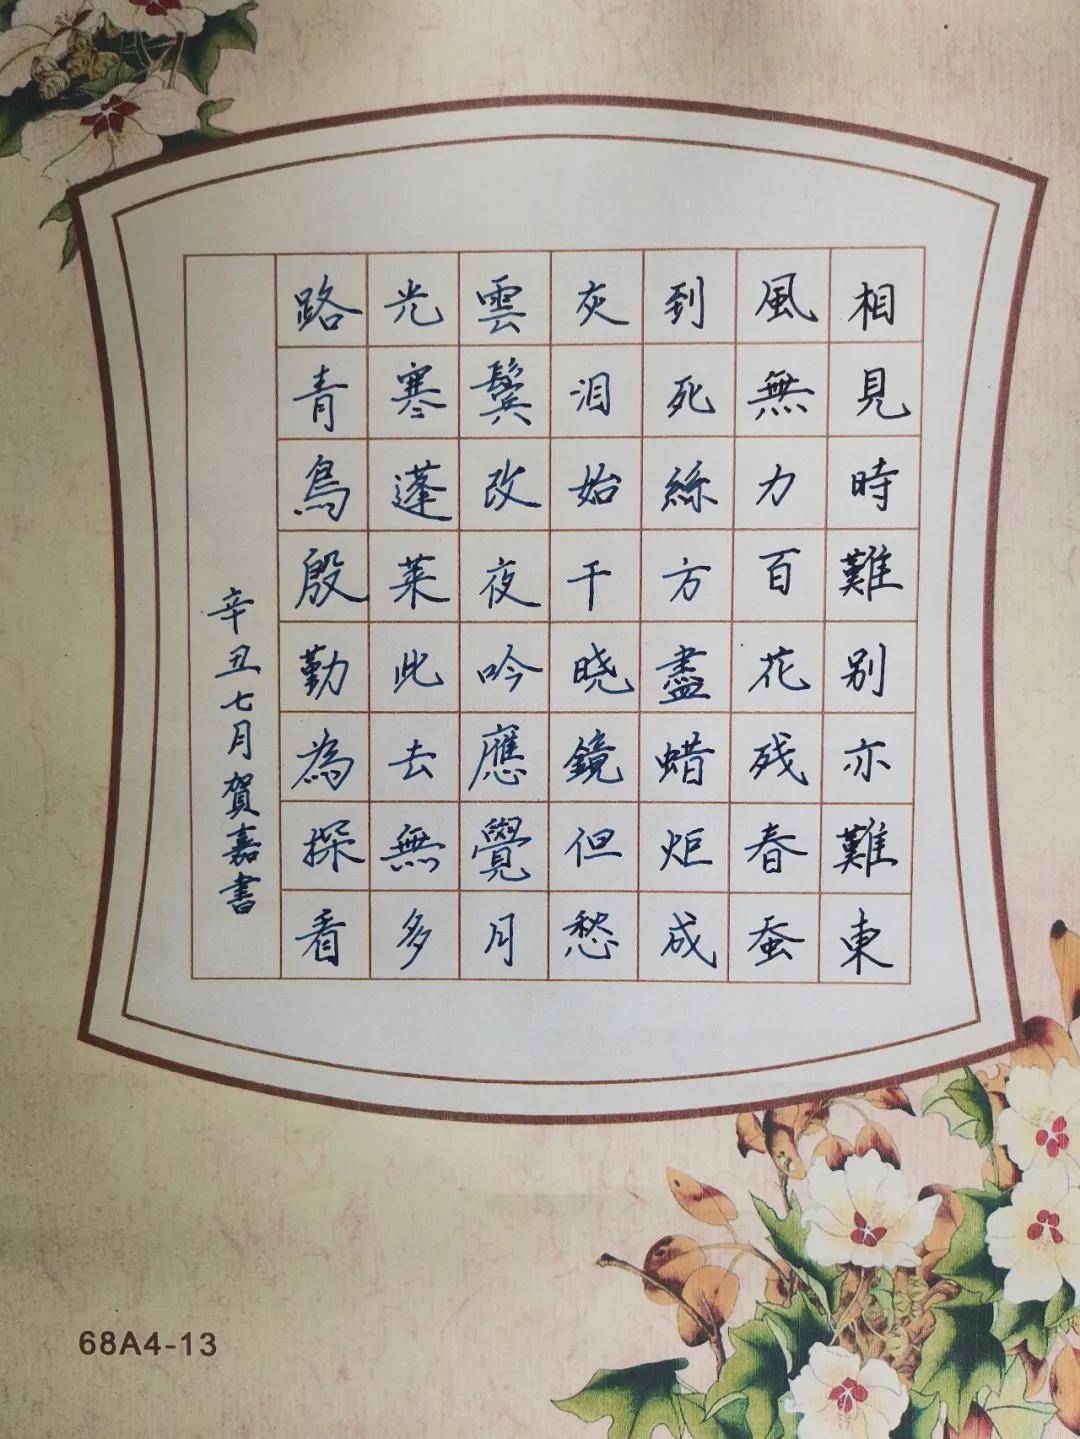 相見時難别亦難東
風無力百花残春蚕
到死絲方盡蜡炬成
灰泪始干晓鏡但愁
雲鬓改夜吟應覺月
光寒蓬莱此去無多
路青鳥殷勤為探看
辛丑七月賀嘉書
68A4-13